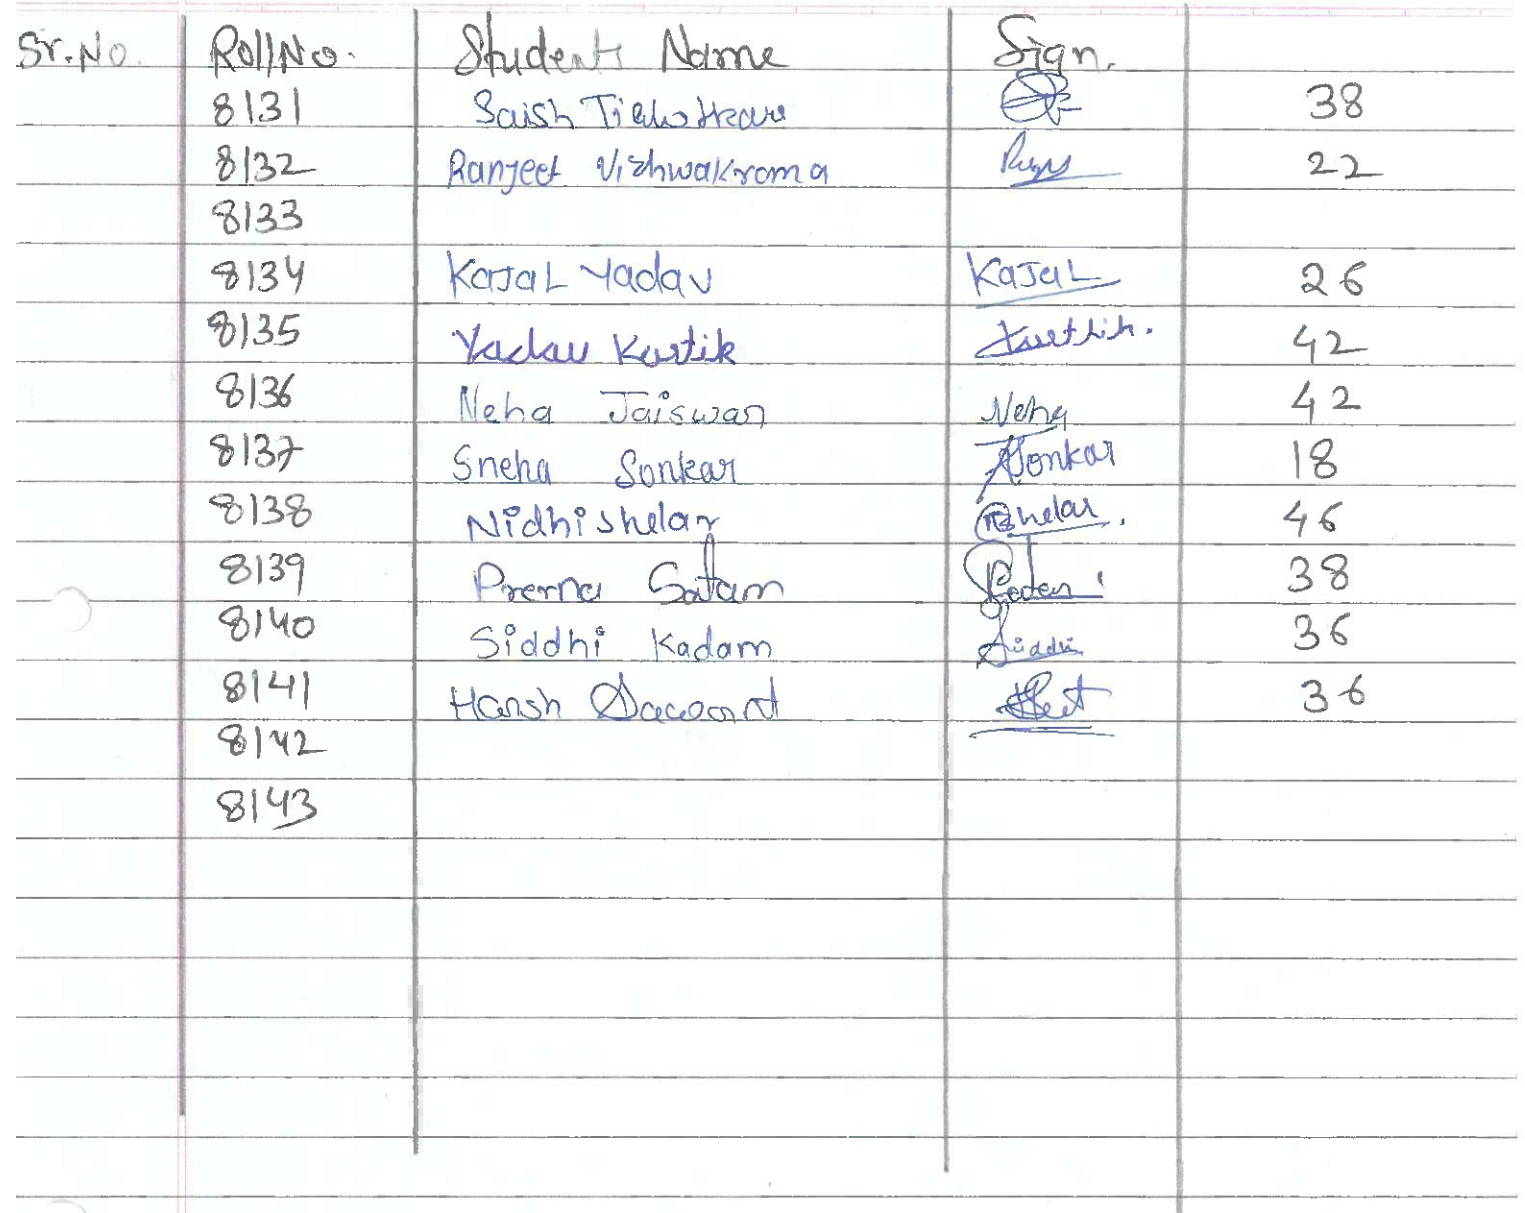 Sr.No. Roll No. Students Name Sign.
8131 Saish 38
8132 Ranjeet Vishwakroma 22
8133
8134 Kajal Yadav Kajal 26
8135 Yadav Kartik Karthik. 42
8136 Neha Jaiswar Neha 42
8137 Sneha Sonkar Sonkar 18
8138 Nidhi Shelar Shelar. 46
8139 Prerna Satam 38
8140 Siddhi Kadam Siddhi 36
8141 Harsh 36
8142
8143